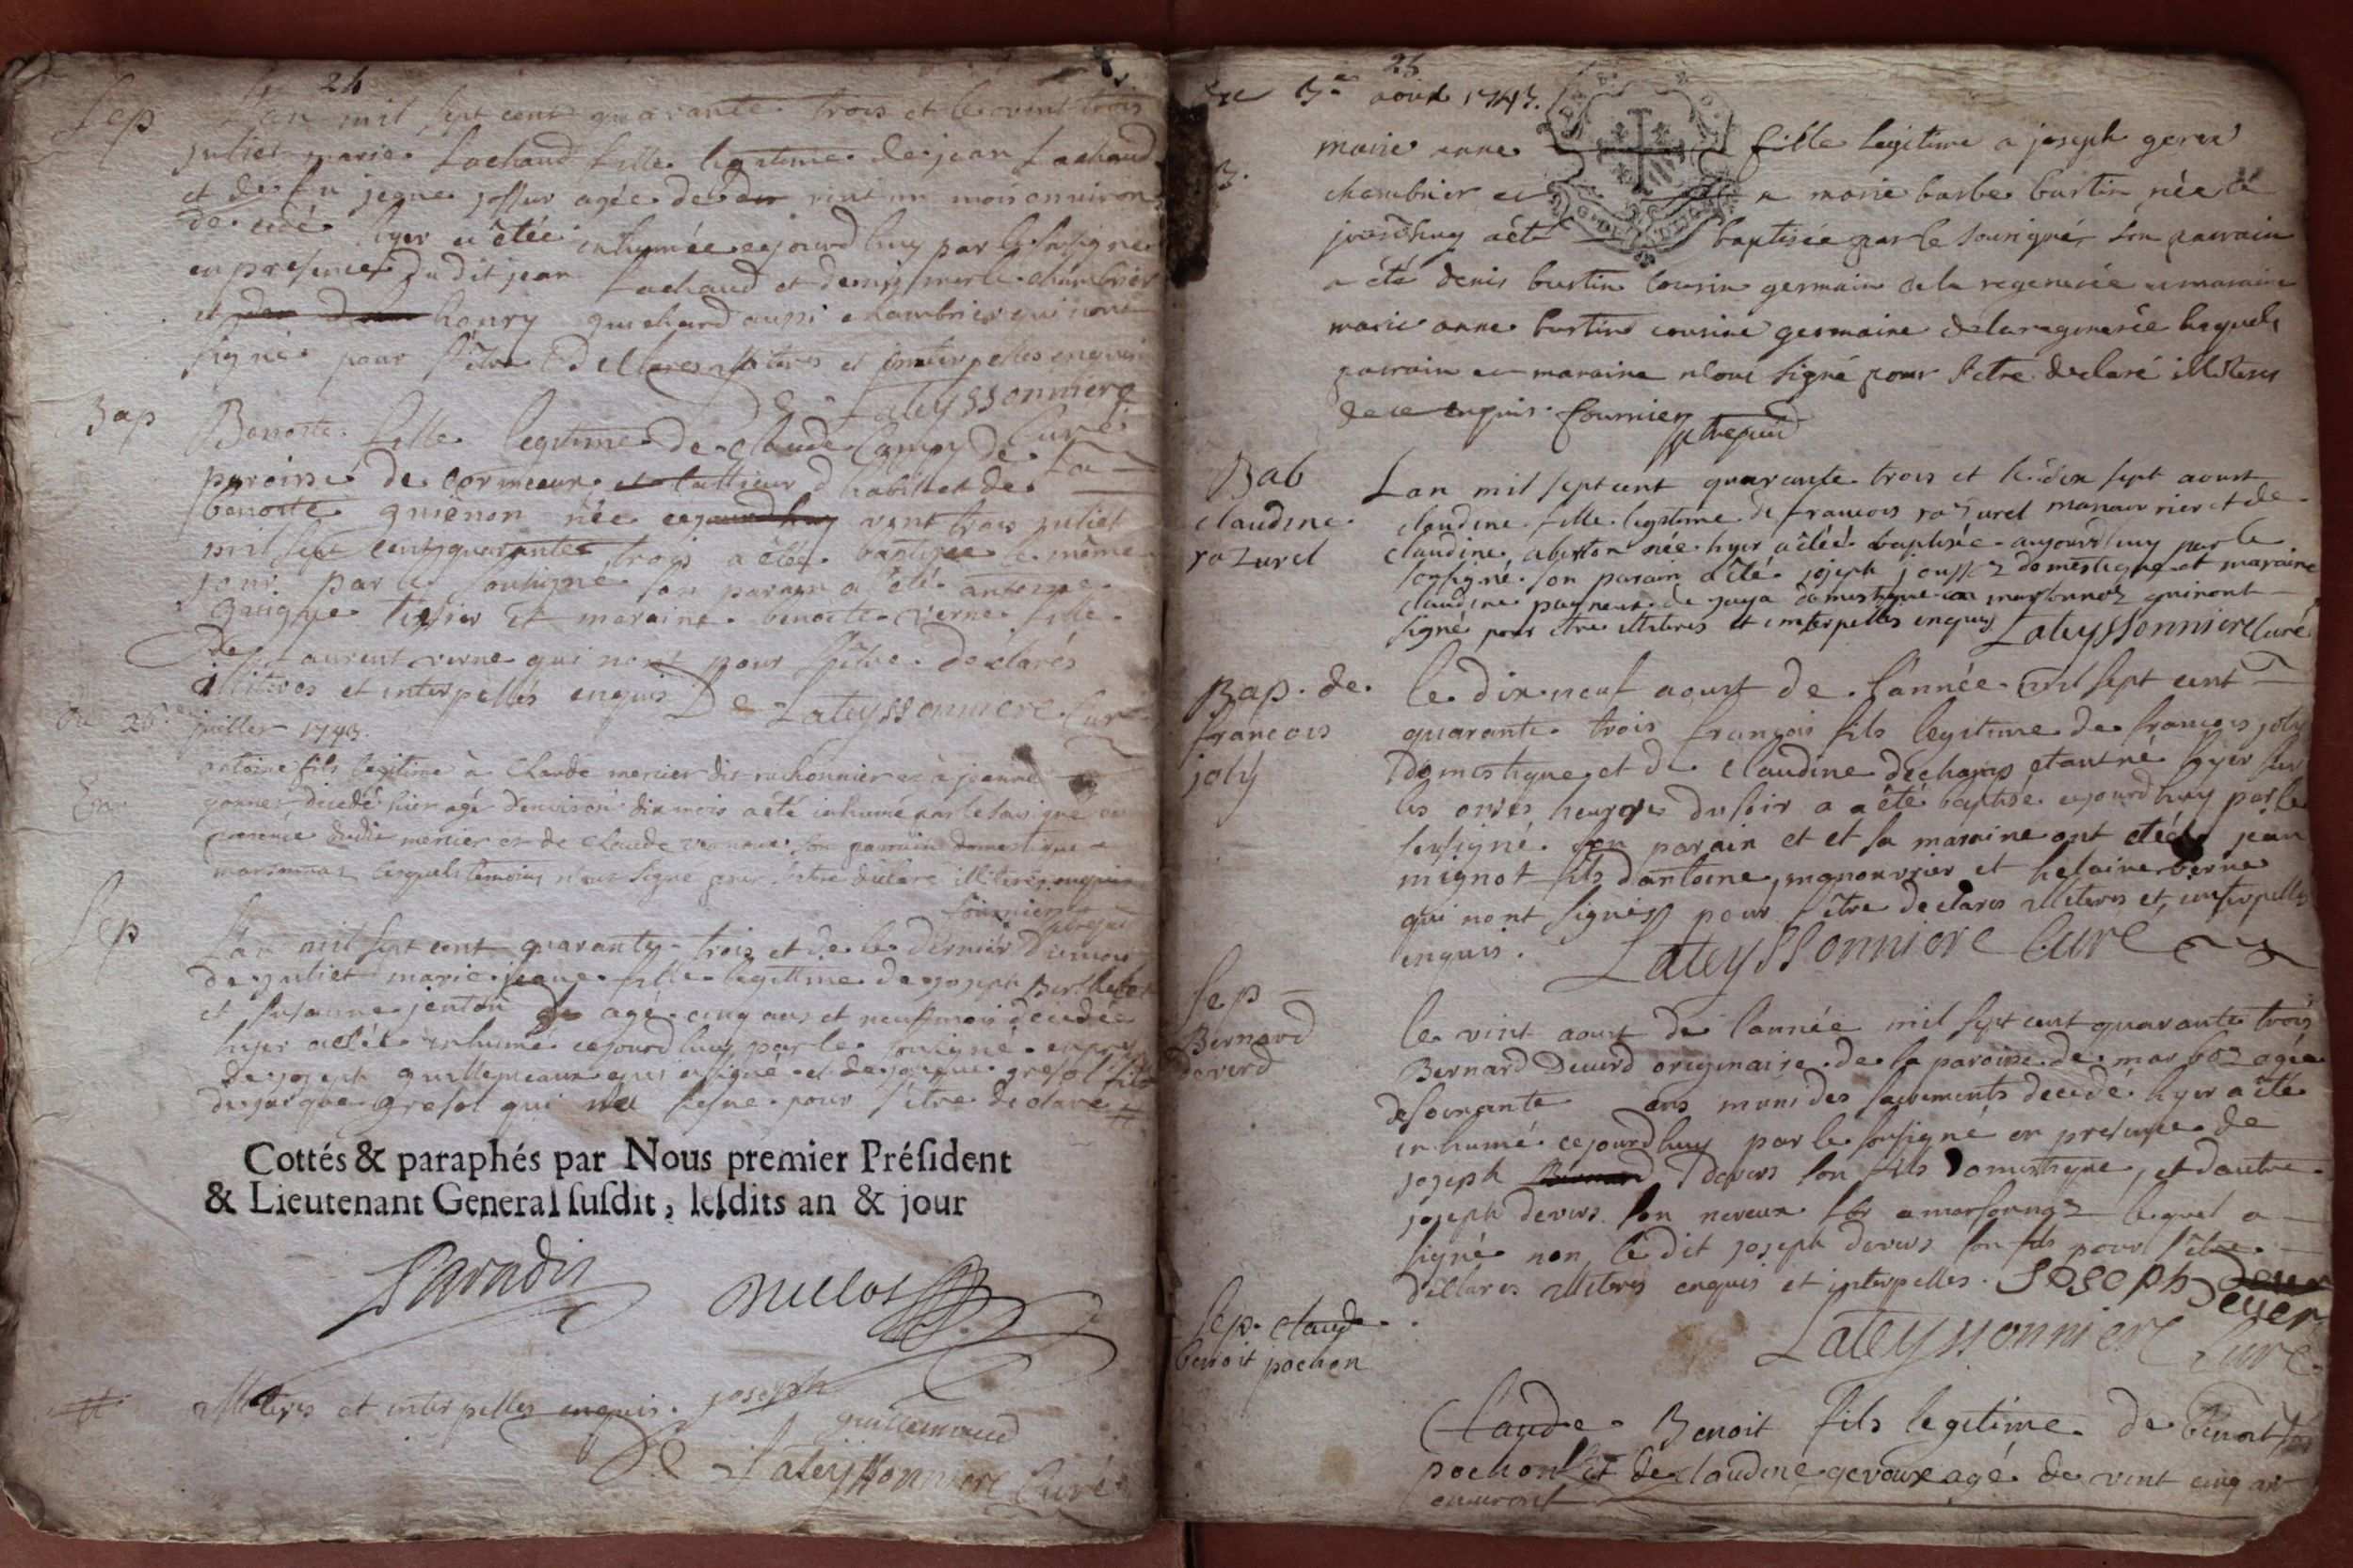 24
Sep
Lan mil sept cent quarante trois et le vint trois
juliet marie Lachaud fille legitime de jean Lachaud
et de fu jeane agée de vint un mois environ
decedé hyer a êtée inhumée cejourdhuy par le sousigné
en presence du dit jean Lachaud et denis merle chambrier
et henry guichard aussi chambrier qui nont
signé pour sêtre declares illiteres et interpellés enquis
De Lateyssonniere
Curé
Bap
Benoite fille legitime de Claude Camp de La
paroisse de cormeaux et tallieur dhabits et de
benoite guienon née cejourdhuy vint trois juliet
mil sept cent quarante trois a êtée baptisée le même
jour par le sousigné son parain a êté antoine
tissier et maraine benoite verne fille
de Laurent verne qui nont pour sêtre declarés
illiteres et interpellés enquis De Lateyssonniere Curé
Du 26e juillet 1743.
antoine fils legitime à Claude mercier dit ruchonnier et à jeanne
decedé hier agé denviron dix mois a été inhumé par le sousigné en
presence dudit mercier et de Claude son parrain domestique a
marsonnas lesquels temoins nont signé pour sêtre declaré illiteres enquis
fournier
Sep
Lan mil sept cent quarante trois et de le dernier du mois
de juliet marie jeane fille legitime de joseph Berthelet
et susanne jenton agé cinq ans et neuf mois decedée
hyer a êté inhumé cejourdhuy par le sousigné en pres
de joseph guillemeaux qui a signé et de jacque gresol fils
de jacque gresol qui na signé pour sêtre declaré #
Cottés & paraphés par Nous premier Préſident
& Lieutenant General ſuſdit, leſdits an & jour
Paradis
# illiteres et interpelles enquis. joseph
guillemaud
De Lateyssonniere Curé
25
Du 3e aoust 1743.
B.
marie anne fille legitime a joseph
chambrier et a marie barbe burtin née ce
jourdhuy a été baptisée par le sousigné son parrain
a été denis burtin cousin germain de la regenerée et maraine
marie anne burtin cousine germaine de la regenerée lesquels
parrain et maraine nont signé pour sêtre declaré illiteres
de ce enquis. fournier
Bab
claudine
razurel
Lan mil sept cent quarante trois et le dix sept aoust
claudine fille legitime de francois razurel manouvrier et de
claudine née hyer a êtée baptisée aujourdhuy par le
sousigné son parain a êté joseph domestique et maraine
claudine de jaya domestique a marsonnaz qui nont
signé pour etre illiteres et interpelles enquis Lateyssonniere Curé
Bap. de
francois
joly
le dix neuf aoust de lannée mil sept cent
quarante trois françois fils legitime de francois joly
domestique et de claudine dechamps etant né hyer sur
les onses heures du soir a a êté baptisé cejourdhuy par le
sousigné son parain et et sa maraine ont etée jean
mignot fils dantoine manouvrier et helaine verne
qui nont signés pour sêtre declares illiteres et interpelles
enquis. Lateyssonniere Curé
Sep
Bernard
Deverd
le vint aoust de lannée mil sept cent quarante trois
Bernard Deverd originaire de la paroisse de marboz agée
de soixante ans muni des sacrements decedé hyer a êté
inhumé cejourdhuy par le sousigné en presence de
joseph devers son fils domestique, et dautre
joseph devers son neveux a marsonnaz lequel a
signé non le dit joseph devers son fils pour sêtre
dellares illiteres enquis et interpelles. JOSEPH
Dever
Lateyssonniere Curé
Sep. claude
benoit pochon
Claude Benoit fils legitime de Benoit
pochon et de claudine gevoux agé de vint cinq an
environt